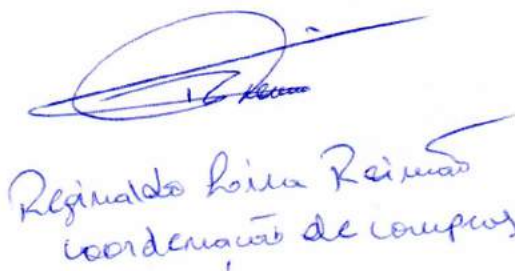 Reginaldo Loina Reimão
coordenação de compras